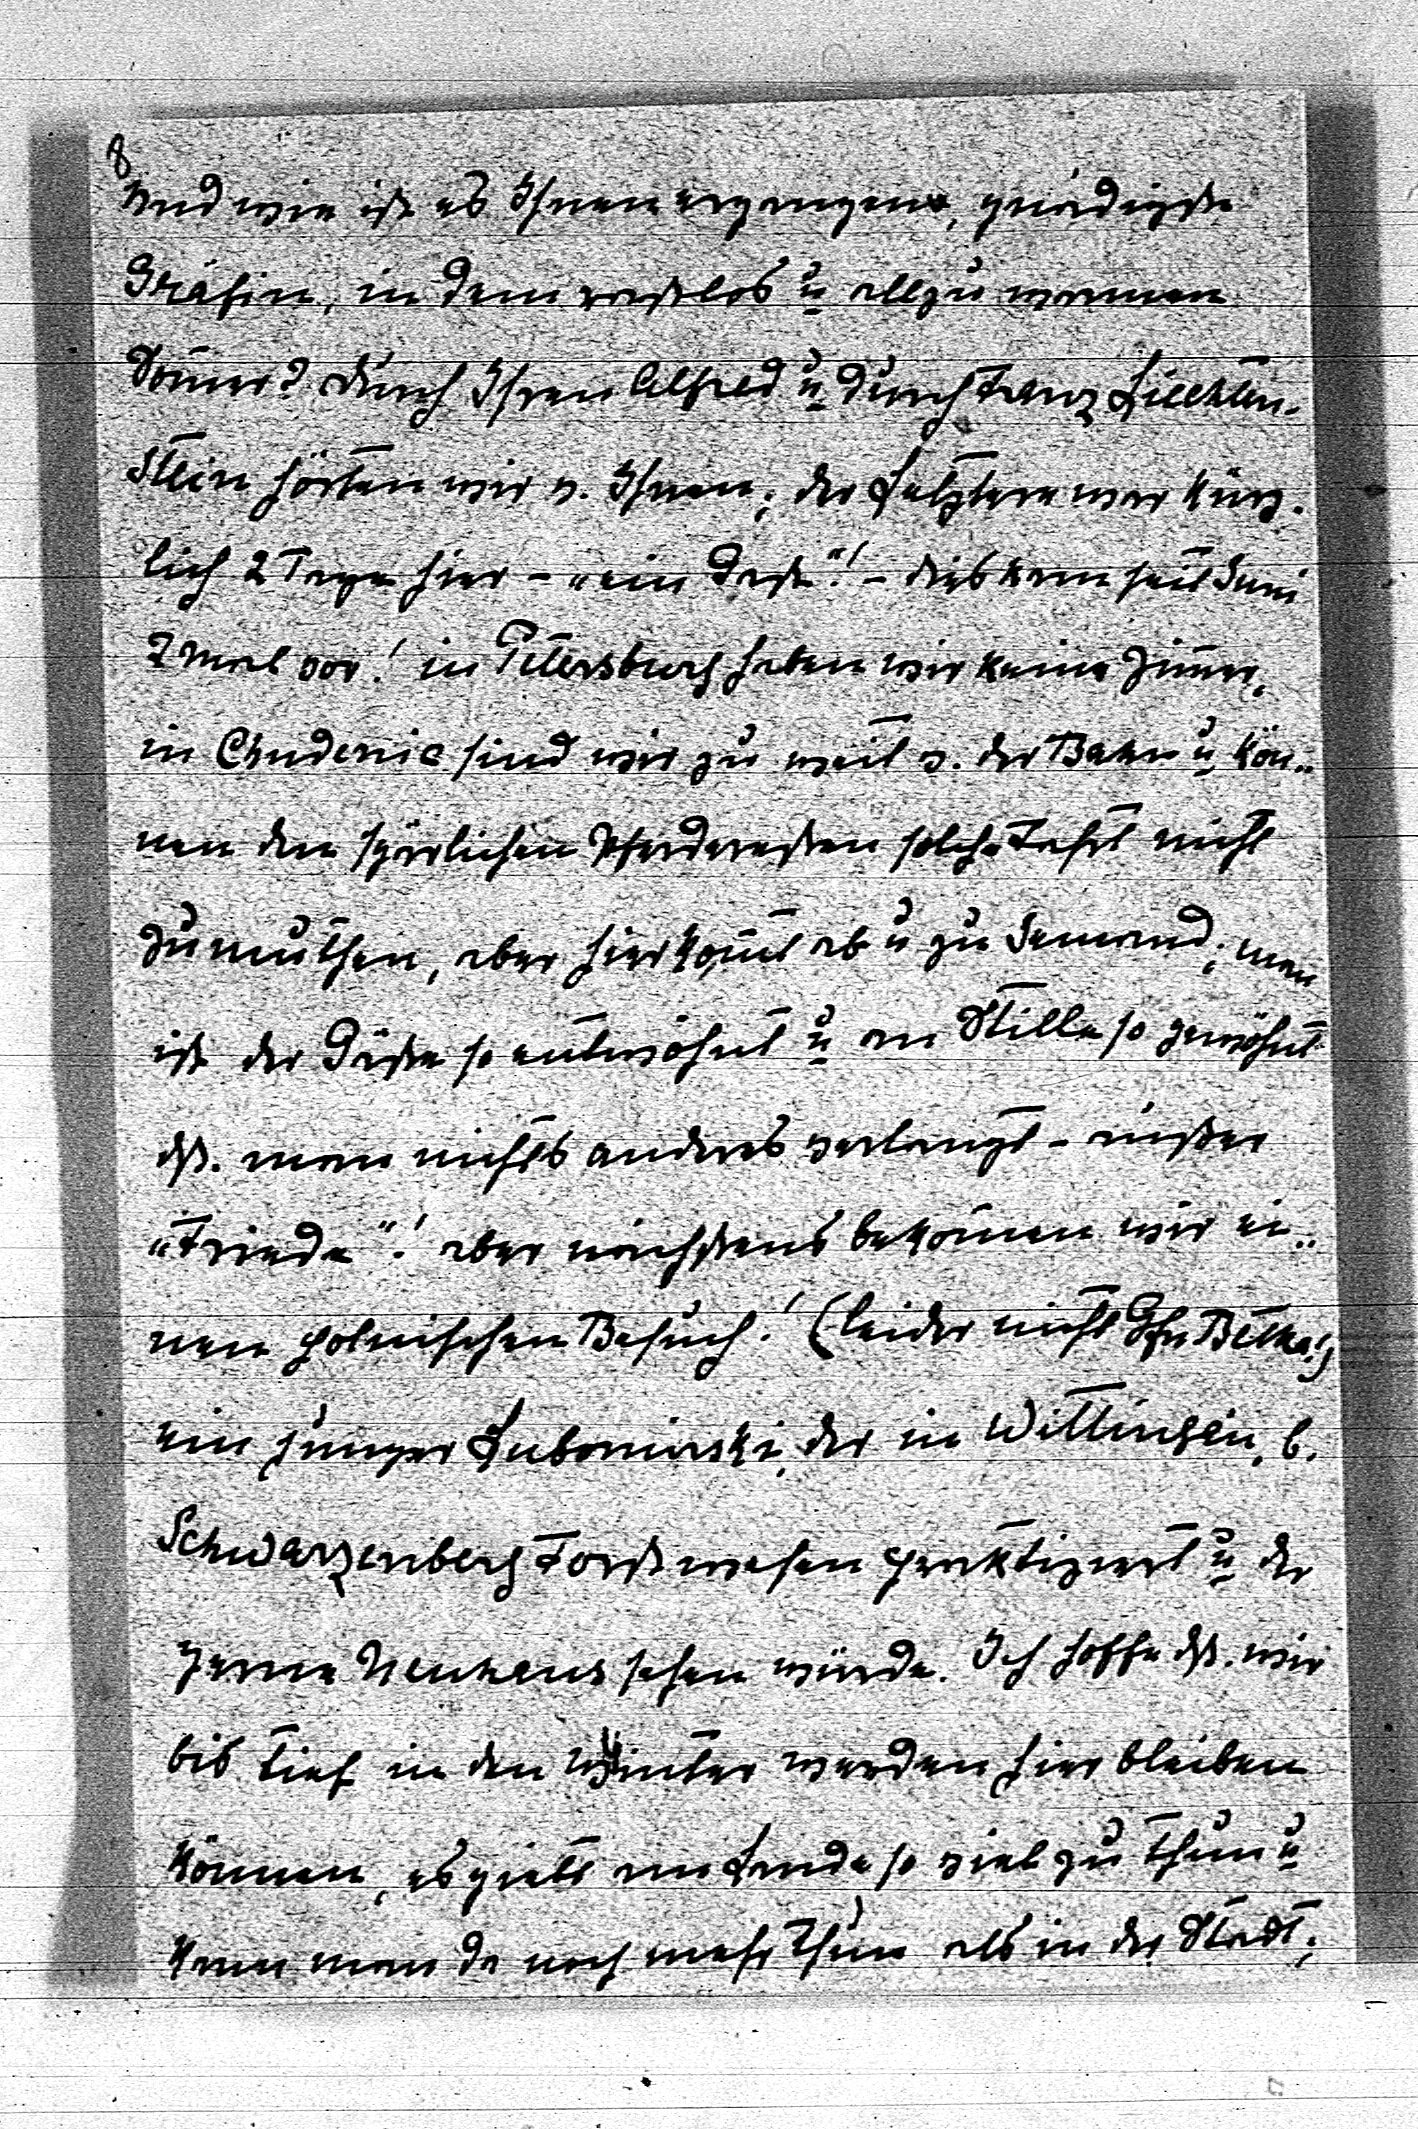 8
Und wie ist es Ihnen ergangen, gnädigste
Gräfin, in dem rastlos u allzu warmen
Som̅er? durch Ihren Alfred u durch Franz Liechten-
stein hörten wir v. Ihnen; der Letztere war kürz-
lich 2 Tage hier – „ein Gast"! – dies kam seit Juni
2 mal vor! in Petersburg haben wir keine Zim̅er,
in Chudenic sind wir zu weit v. der Bahn u kön-
nen den spärlichen Pferderesten solche Fahrt nicht
zumuthen, aber hier kom̅t ab u zu Jemand; man
ist der Gäste so entwöhnt u an Stille so gewöhnt
dß. man nichts anderes verlangt – außer
„Friede"! aber nächstens bekom̅en wir ei-
nen polnischen Besuch! (leider nicht Gfn Betka!)
ein junger Lubomirski, der in Wittingau, b.
Schwarzenberg Forstwesen praktizirt u der
gerne Neuhaus sehen würde. Ich hoffe dß. wir
bis tief in den Winter werden hier bleiben
können, es giebt am Lande so viel zu thun u
kann man da noch mehr thun als in der Stadt;